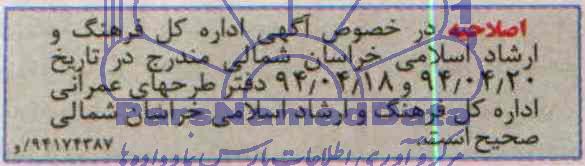 اصلاحیه در خصوص آگهی اداره کل فرهنگ و
ارشاد اسلامی خراسان شمالی مندرج در تاریخ
۹۴/۰۴/۲۰ و ۹۴/۰۴/۱۸ دفتر طرحهای عمرانی
اداره کل فرهنگ و ارشاد اسلامی خراسان شمالی
صحیح است.
۹۴۱۷۴۳۸۷/و
ParsNamadData